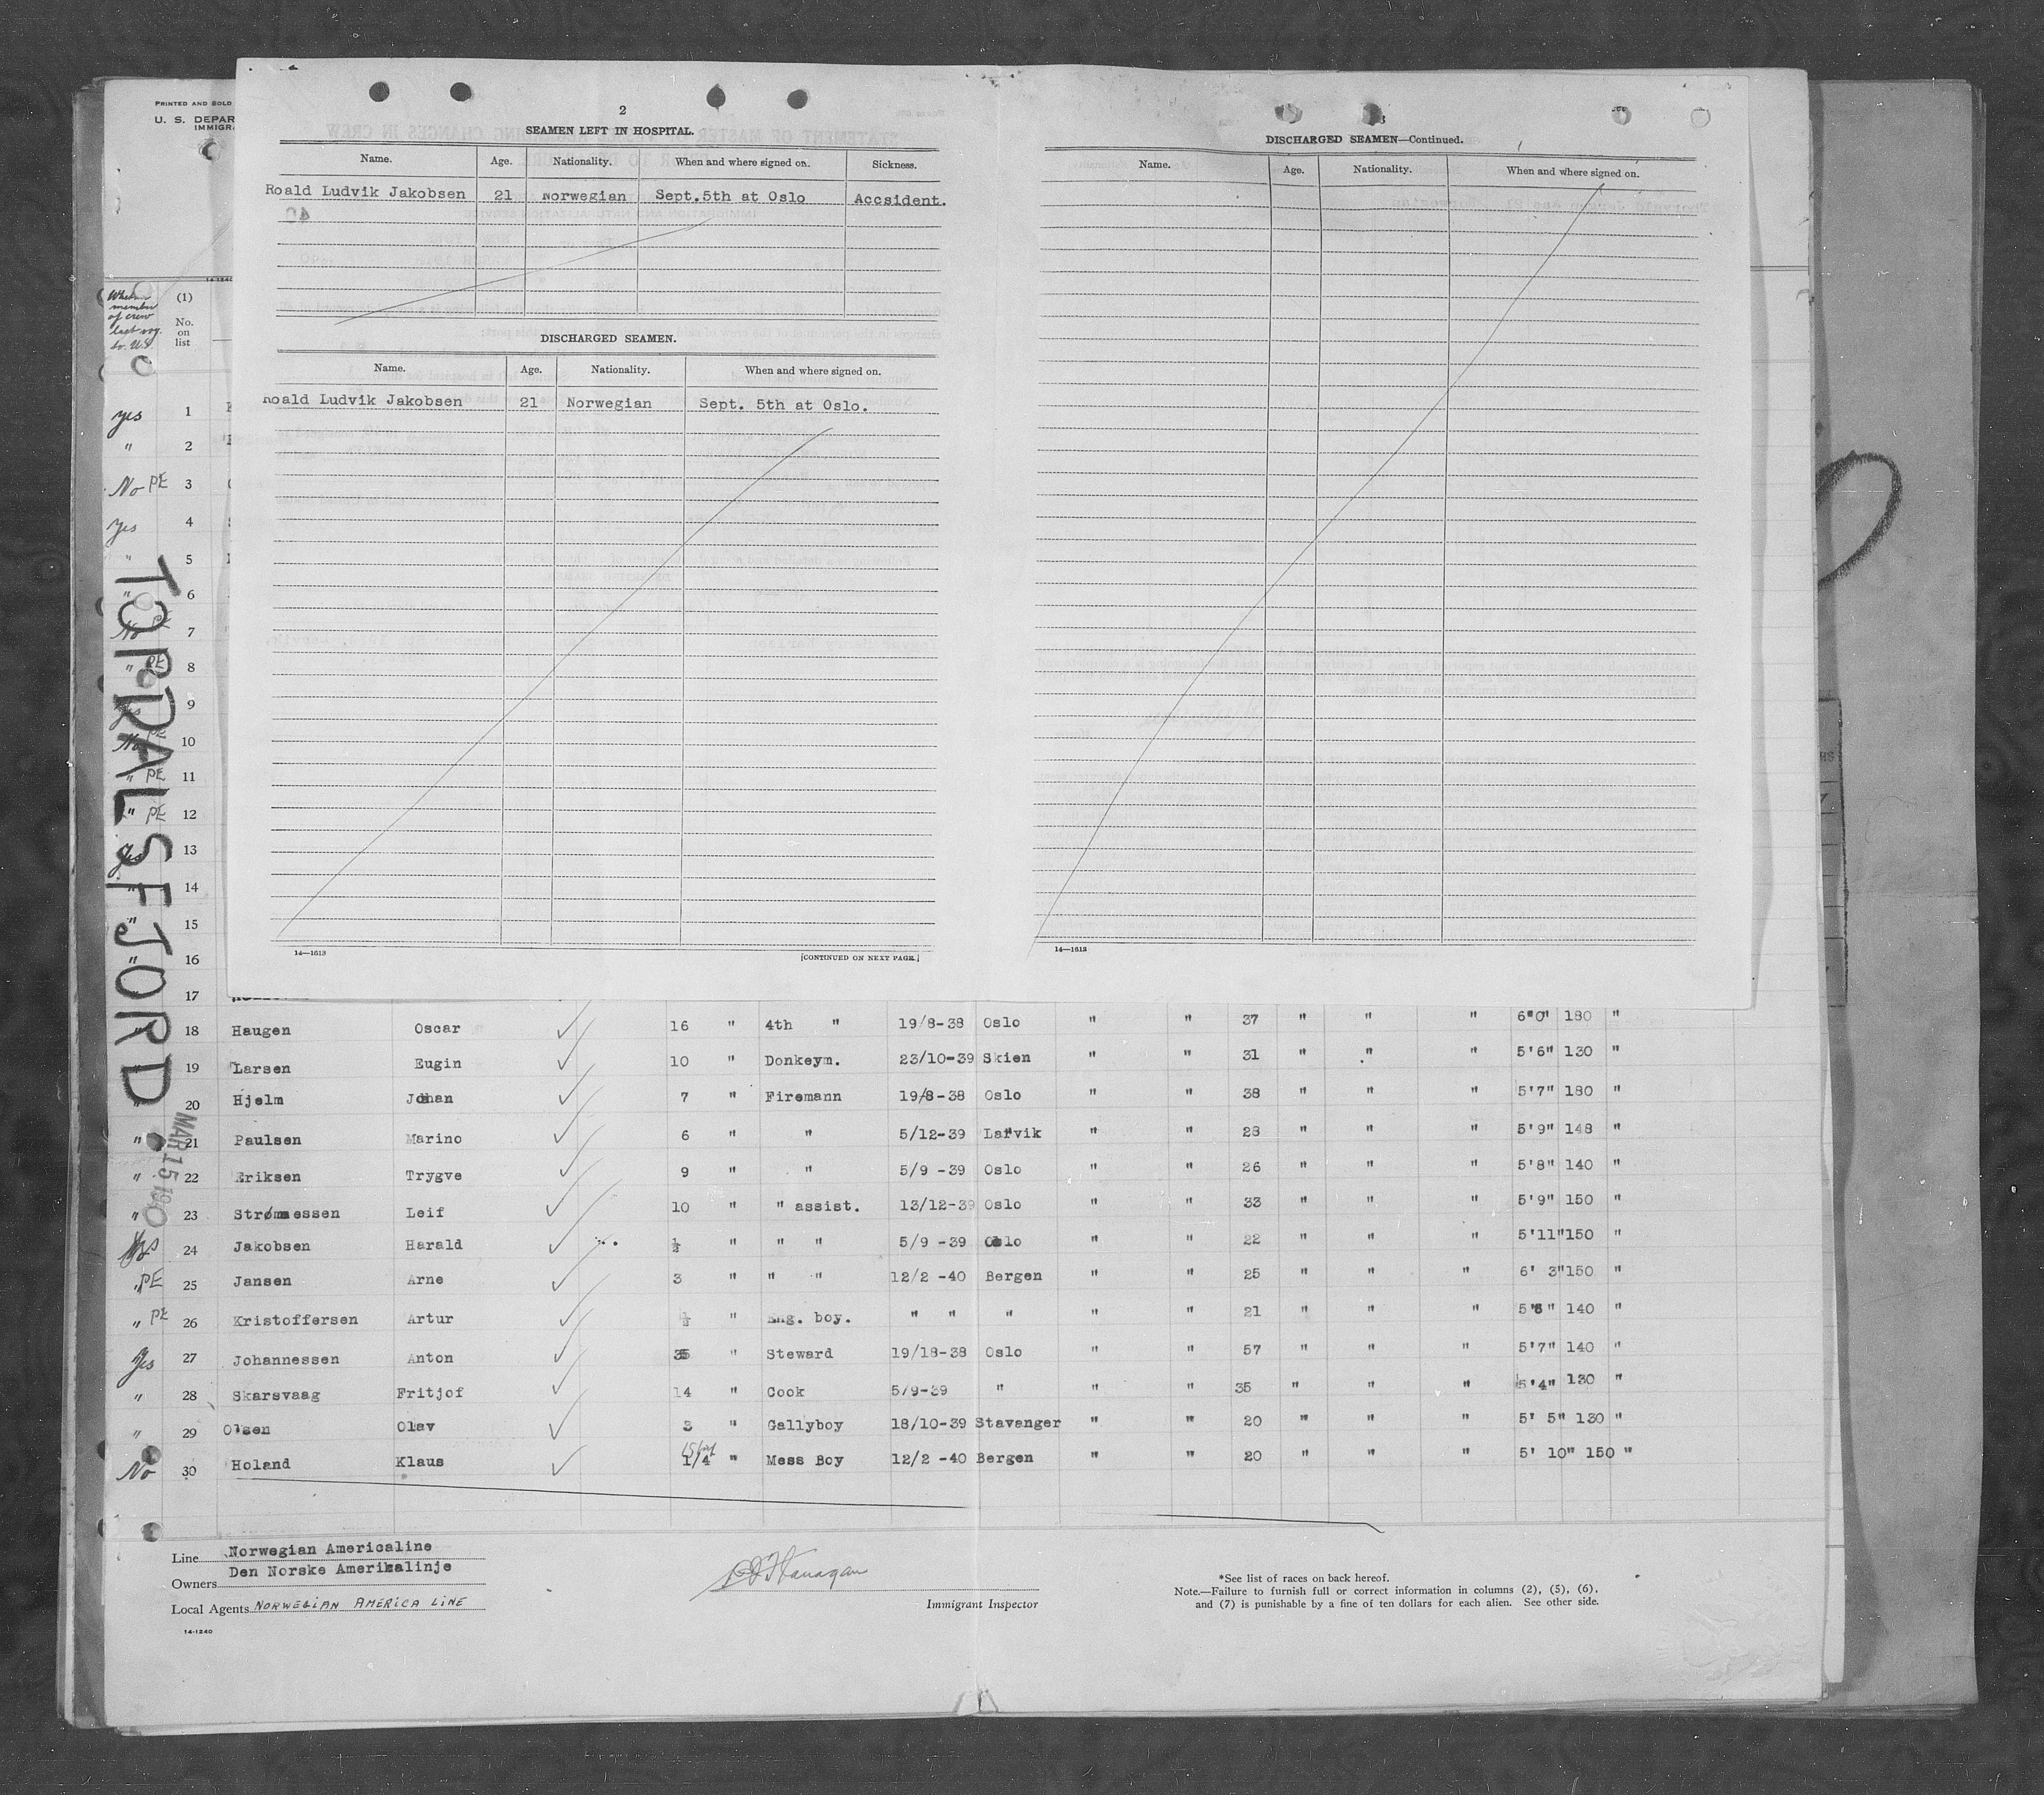 PRINTED AND SOLD
U. S. DEPAR
IMMIGRA
2
SEAMEN LEFT IN HOSPITAL.
Name. Age. Nationality. When and where signed on. Sickness.
Roald Ludvik Jakobsen 21 Norwegian Sept.5th at Oslo Accsident.
DISCHARGED SEAMEN.
Name. Age. Nationality. When and where signed on.
noald Ludvik Jakobsen 21 Norwegian Sept. 5th at Oslo.
14—1613
[CONTINUED ON NEXT PAGE.]
3
DISCHARGED SEAMEN—Continued.
Name. Age. Nationality. When and where signed on.
14—1613
14-1240
Whether member of crew last voy. to U.S.
(1) No. on list
yes 1
" 2
No PE 3
yes 4
" 5
" 6
No PE 7
" PE 8
yes 9
No 10
" PE 11
" PE 12
yes 13
" 14
" 15
" 16
17
TOPDALSFJORD
MAR 15 1940
" 18 Haugen Oscar 16 " 4th " 19/8-38 Oslo " " 37 " " " 6"0" 180 "
" 19 Larsen Eugin 10 " Donkeym. 23/10-39 Skien " " 31 " " " 5'6" 130 "
" 20 Hjelm Johan 7 " Firemann 19/8-38 Oslo " " 38 " " " 5'7" 180 "
" 21 Paulsen Marino 6 " " 5/12-39 Larvik " " 28 " " " 5'9" 148 "
" 22 Eriksen Trygve 9 " " 5/9 -39 Oslo " " 26 " " " 5'8" 140 "
" 23 Strømmessen Leif 10 " " assist. 13/12-39 Oslo " " 33 " " " 5'9" 150 "
24 Jakobsen Harald ½ " " " 5/9 -39 Oslo " " 22 " " " 5'11" 150 "
" PE 25 Jansen Arne 3 " " " 12/2 -40 Bergen " " 25 " " " 6' 3" 150 "
" PE 26 Kristoffersen Artur ½ " Eng. boy. " " " " " 21 " " " 5'6" 140 "
Yes 27 Johannessen Anton 35 " Steward 19/18-38 Oslo " " 57 " " " 5'7" 140 "
" 28 Skarsvaag Fritjof 14 " Cook 5/9-39 " " " 35 " " " 5'4" 130 "
" 29 Olsen Olav 3 " Gallyboy 18/10-39 Stavanger " " 20 " " " 5' 5" 130 "
No 30 Holand Klaus 1/4 " Mess Boy 12/2 -40 Bergen " " 20 " " " 5' 10" 150 "
Line Norwegian Americaline
Owners Den Norske Amerikalinje
Local Agents NORWEGIAN AMERICA LINE
14-1240
Flanagan
Immigrant Inspector
*See list of races on back hereof.
Note.—Failure to furnish full or correct information in columns (2), (5), (6),
and (7) is punishable by a fine of ten dollars for each alien. See other side.